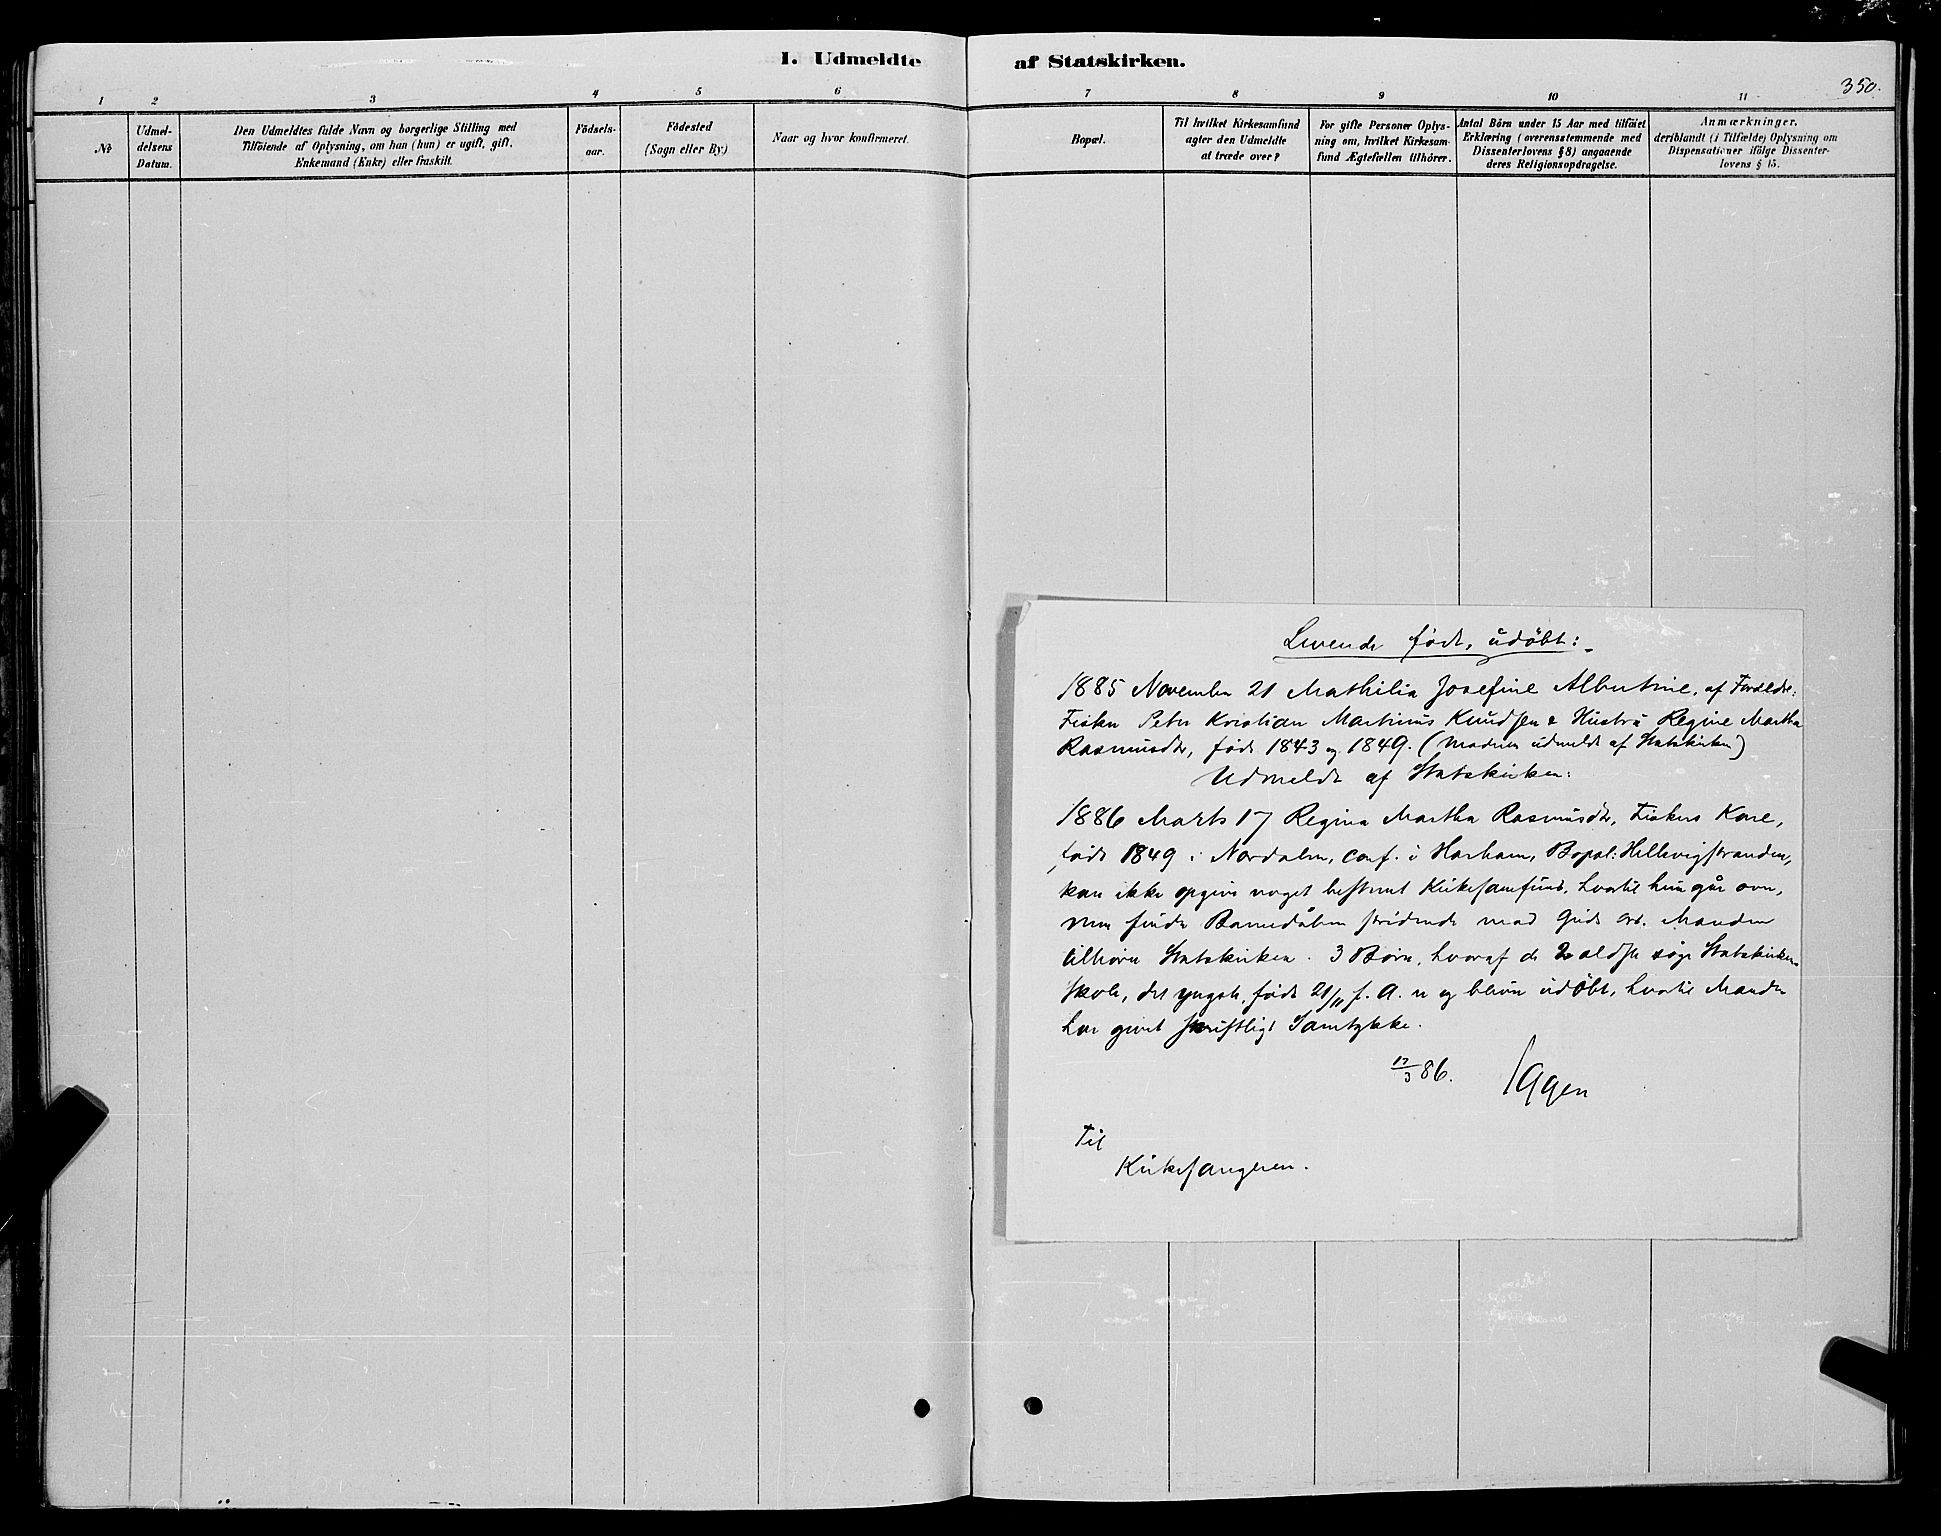 I. Udmeldte af Statskirken.
350.
1 2 3 4 5 6 7 8 9 10 11
№
Udmel-
delsens
Datum.
Den Udmeldtes fulde Navn og borgerlige Stilling med
Tilföiende af Oplysning, om han (hun) er ugift, gift,
Enkemand (Enke) eller fraskilt.
Födsels-
aar.
Födested
(Sogn eller By)
Naar og hvor konfirmeret.
Bopæl.
Til hvilket Kirkesamfund
agter den Udmeldte
at træde over?
For gifte Personer Oplys-
ning om, hvilket Kirkesam-
fund Ægtefællen tilhörer.
Antal Börn under 15 Aar med tilföiet
Erklæring (overensstemmende med
Dissenterlovens § 8) angaaende
deres Religionsopdragelse.
Anmærkninger,
deriblandt (i Tilfælde) Oplysning om
Dispensationer ifölge Dissenter-
lovens § 15.
Levende født, udøbt:
1885 November 21 Mathilia Josefine Albertine, af Foreldre:
Fisker Peter Kristian Martinus Knudsen & Hustru Regine Martha
Rasmusdtr, født 1843 og 1849. (Moderen udmeldt af Statskirken)
Udmeldt af Statskirken:
1886 Marts 17 Regina Martha Rasmusdtr, Fiskers Kone,
født 1849 i Nordalen, conf. i Harham, Bopæl: Hellevigstranden,
kan ikke opgive noget bestemt Kirkesamfund, hvortil hun går over,
men finder Barnedåben stridende mod Guds ord. Manden
tilhører Statskirken. 3 Børn, hvoraf de 2 ældste søge Statskirkens
skole, det yngste, født 21/11 f. A. er og bliver udøbt, hvortil Manden
har givet skriftligt Samtykke.
17/3 86. Iggen
Til
Kirkesangeren.